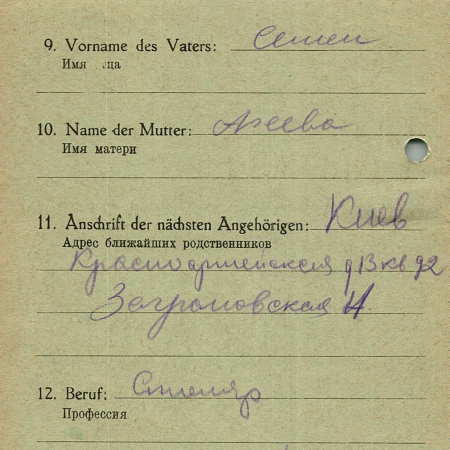 9. Vorname des Vaters: Семен
Имя отца
10. Name der Mutter: Агеева
Имя матери
11. Anschrift der nächsten Angehörigen: Киев
Адрес ближайших родственников
Красноармейская д 13 кв 92
12. Beruf: Столяр
Профессия